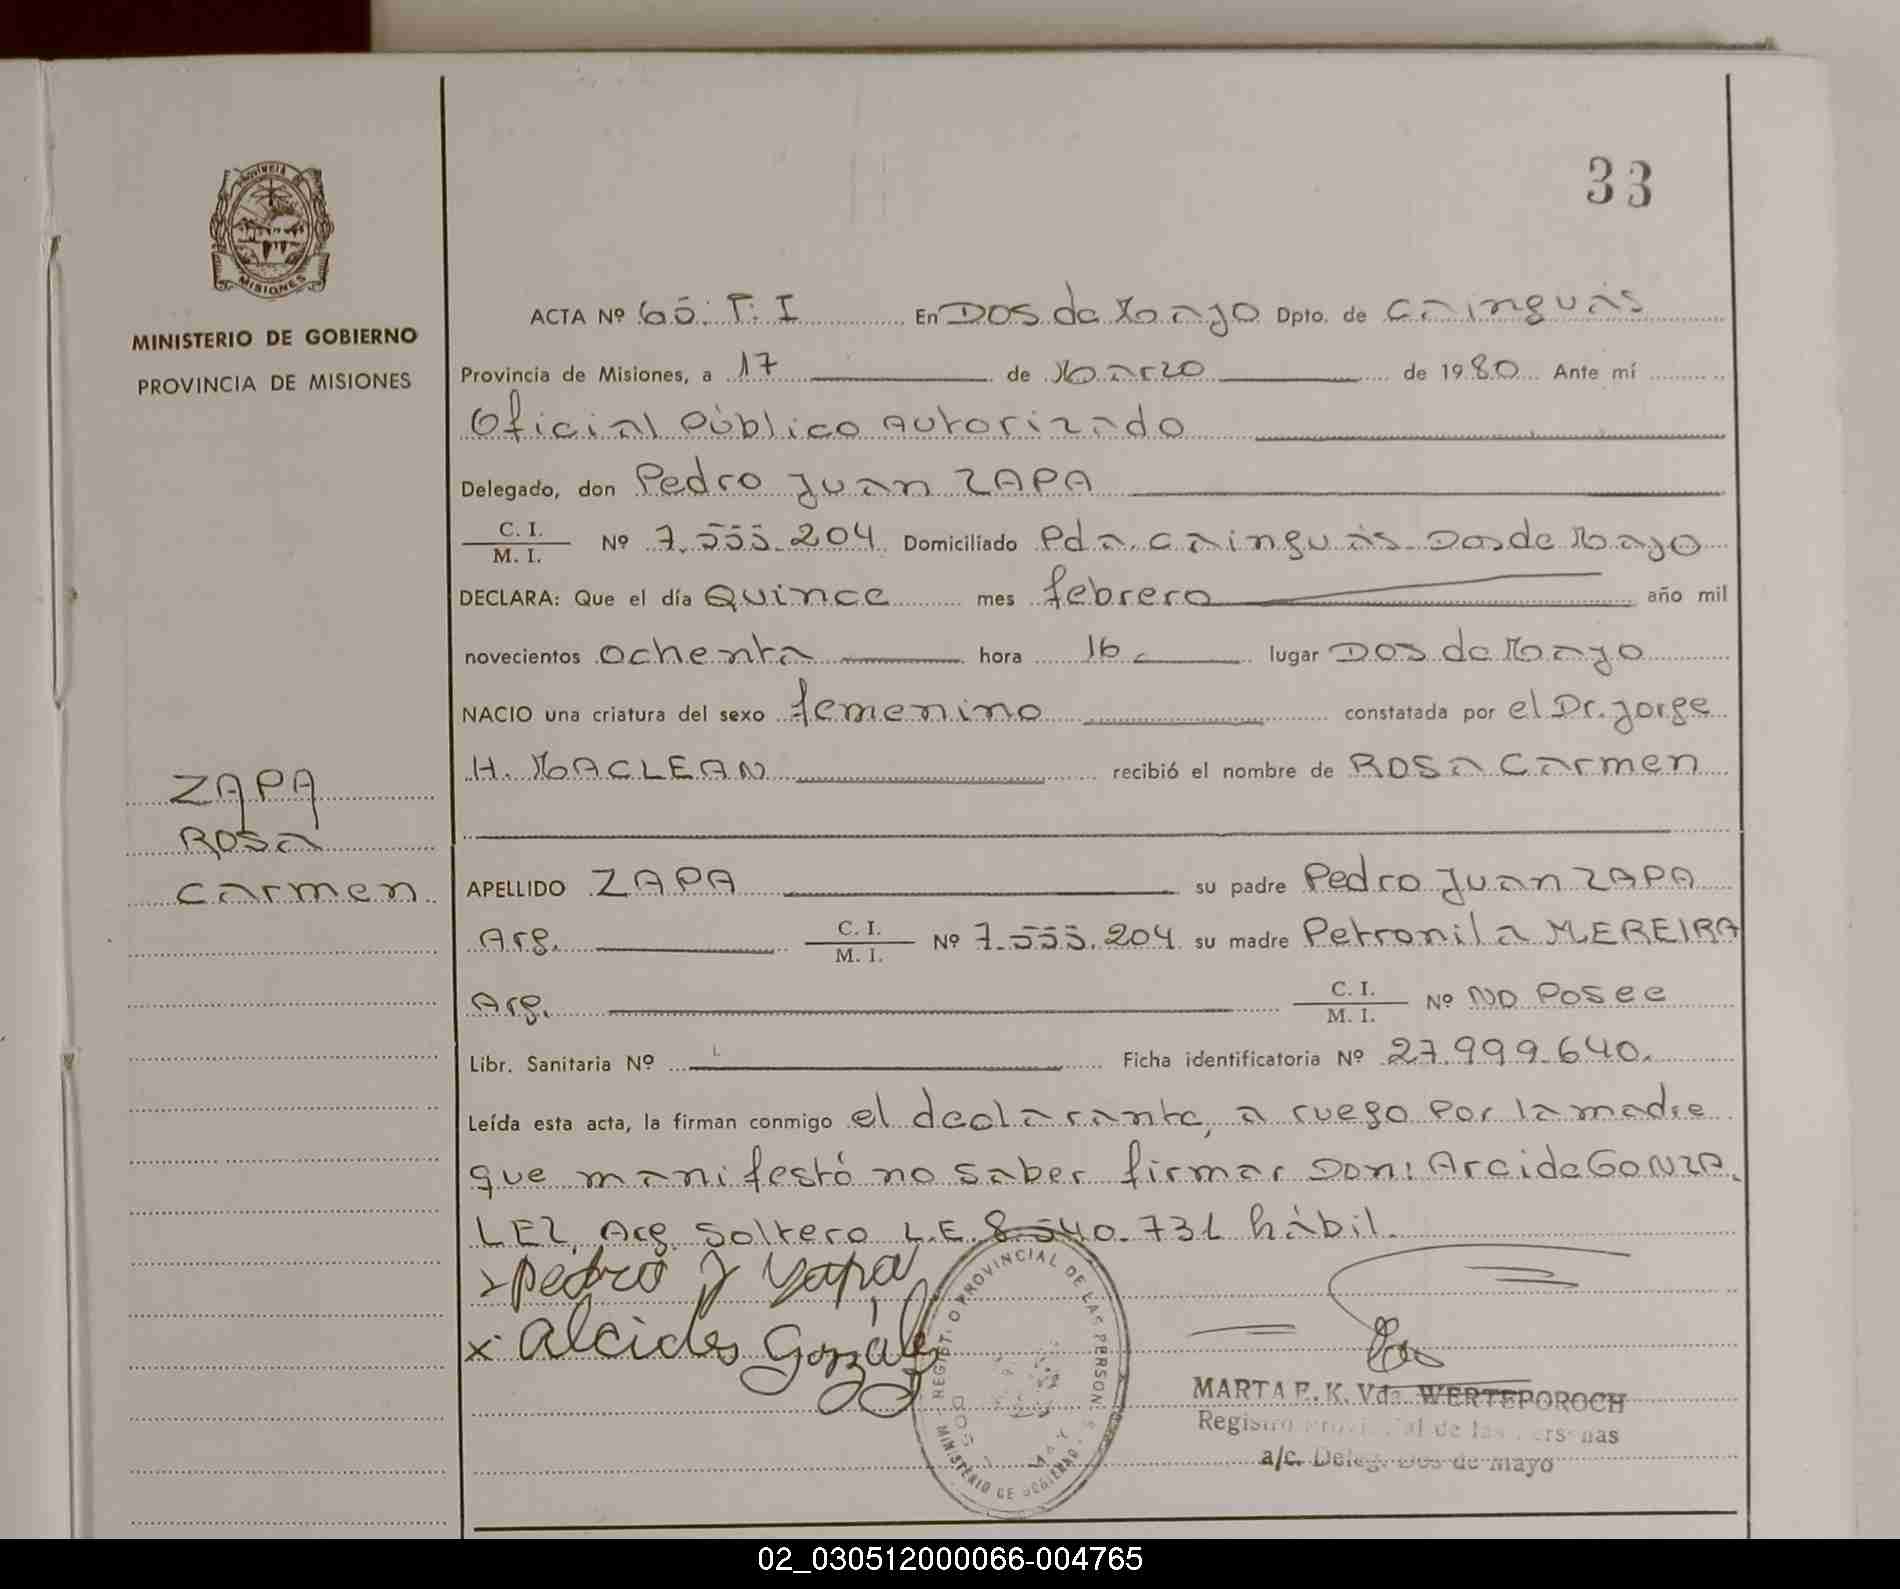 33
PROVINCIA DE
MISIONES
MINISTERIO DE GOBIERNO
PROVINCIA DE MISIONES
ZAPA
ROSA
Carmen
ACTA Nº 65. T. I En Dos de Mayo Dpto. de Cainguás
Provincia de Misiones, a 17 de Marzo de 1980 Ante mí
Oficial Público Autorizado
Delegado, don Pedro Juan ZAPA
C. I.
M. I. Nº 7.555.204 Domiciliado Pda. Cainguás Dos de Mayo
DECLARA: Que el día Quince mes febrero año mil
novecientos ochenta hora 16 lugar Dos de Mayo
NACIO una criatura del sexo femenino constatada por el Dr. Jorge
H. MACLEAN recibió el nombre de ROSA Carmen
APELLIDO ZAPA su padre Pedro Juan ZAPA
Arg. C. I.
M. I. Nº 7.555.204 su madre Petronila MEREIRA
Arg. C. I.
M. I. Nº No Posee
Libr. Sanitaria Nº Ficha identificatoria Nº 27.999.640.
Leída esta acta, la firman conmigo el declarante, a ruego por la madre
que manifestó no saber firmar Don: Arcide GONZA
LEZ, Arg. Soltero L.E. 8.540.731 hábil.
Pedro J Zapa
x Alcides González
REGIST.O PROVINCIAL DE LAS PERSON.
MINISTERIO DE GOBIERNO
MARTA E. K. Vda. WERTEPOROCH
Registro Provincial de las Personas
a/c. Deleg. Dos de Mayo
02_030512000066-004765